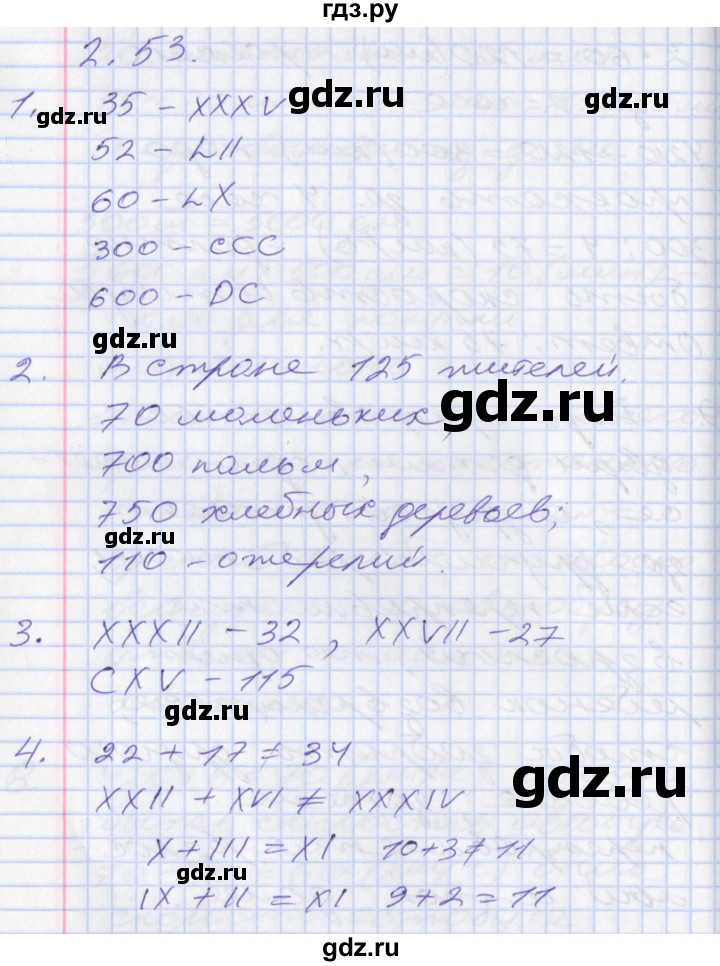 гдз.ру
2.53.
1. 35 - XXXV
52 - LII
60 - LX
300 - CCC
600 - DC
2. В стране 125 жителей.
70 маленьких,
700 пальм,
750 хлебных деревьев;
110 - ожерелий.
3. XXXII - 32, XXVII - 27
CXV - 115
4. 22 + 17 ≠ 34
XXII + XVI ≠ XXXIV
X + III = XI 10 + 3 ≠ 11
IX + II = XI 9 + 2 = 11
gdz.ru
gdz.ru
gdz.ru
gdz.ru
gdz.ru
gdz.ru
gdz.ru
gdz.ru
gdz.ru
gdz.ru